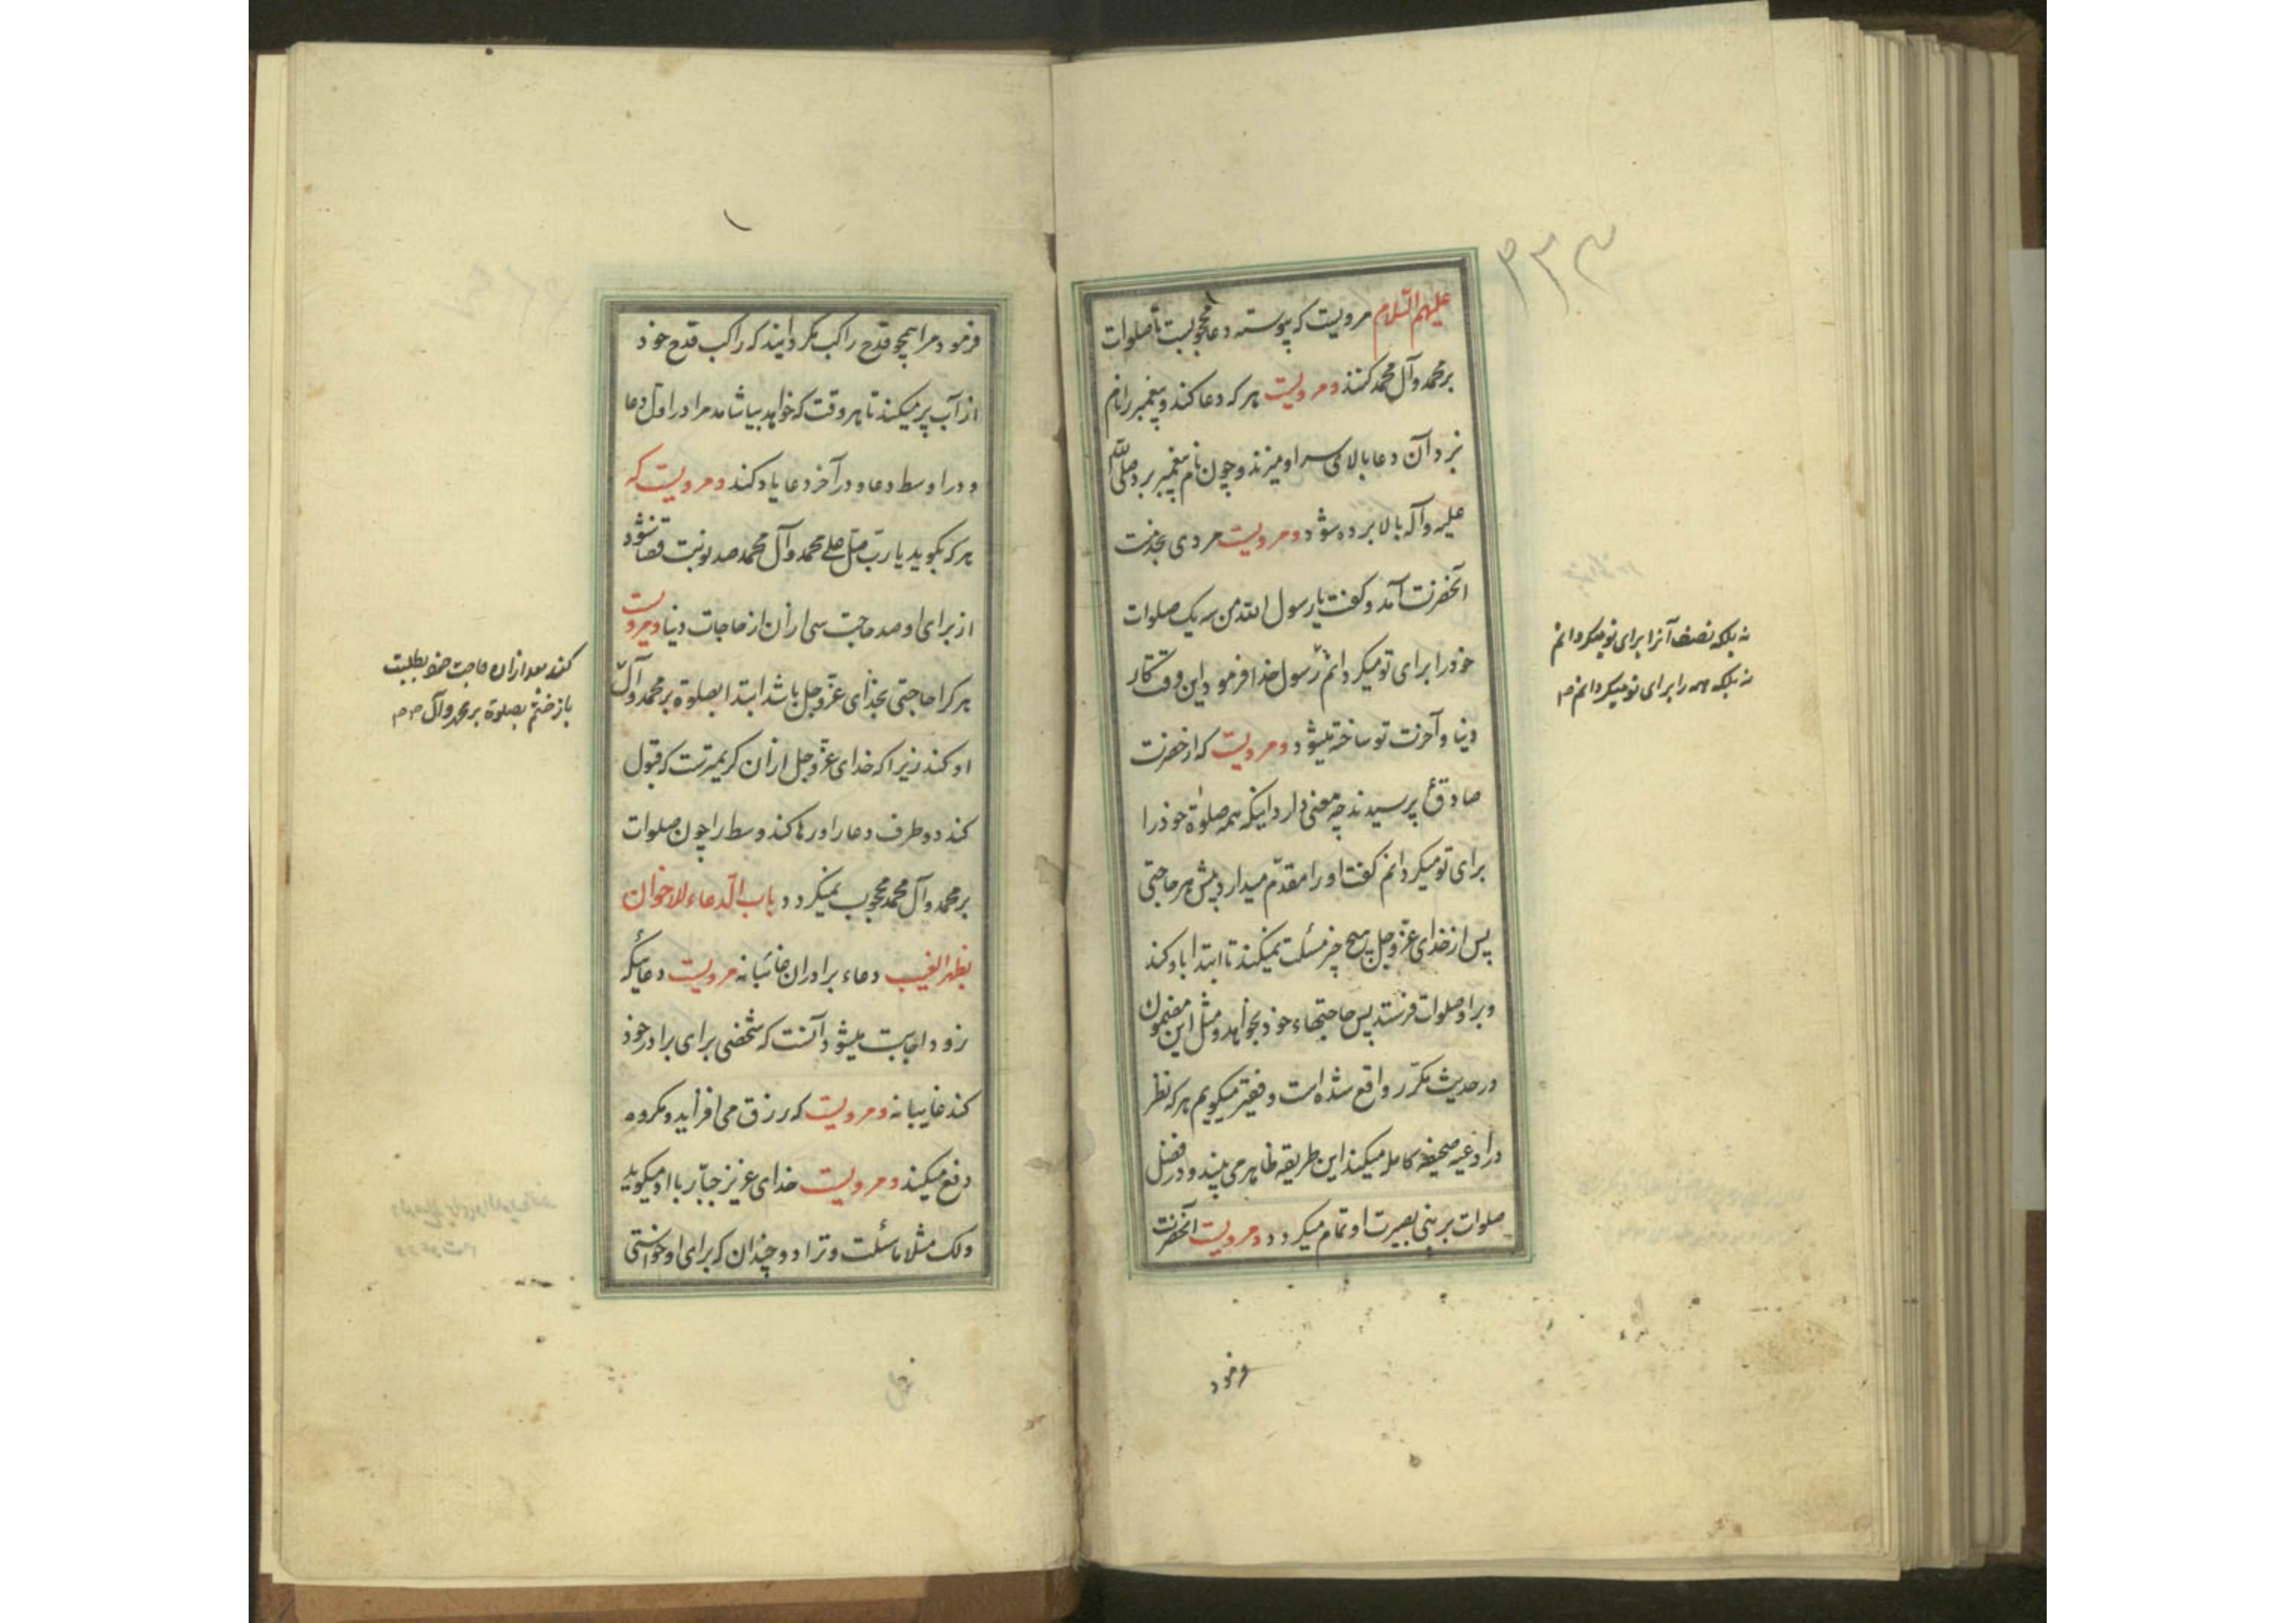 ۳۳۳
علیهم السلام مرویست که پیوسته دعا محجوبست تا صلوات
بر محمد و آل محمد کنند و مرویست هر که دعا کند و پیغمبر را نام
نبرد آن دعا بالای سر او میزند و چون نام پیغمبر برد صلی الله
علیه و آله بالا برده شود و مرویست مردی بخدمت
آنحضرت آمد و گفت یا رسول الله من سه یک صلوات
خود را برای تو میگردانم رسول خدا فرمود این وقت کار
دنیا و آخرت تو ساخته میشود و مرویست که از حضرت
صادق ع پرسیدند چه معنی دارد اینکه همه صلوة خود را
برای تو میگردانم گفت او را مقدّم میدارد پیش هر حاجتی
پس از خدای عزّ و جل هیچ چیز مسئلت نمیکند تا ابتدا باو کند
و بر او صلوات فرستد پس حاجتهاء خود بخواهد و مثل این مضمون
در حدیث مکرّر واقع شده است و فقیر میگویم هر که نظر
در ادعیه صحیفه کامله میکند این طریقه ظاهر می بیند و در فضل
صلوات بر نبی بصیرت او تمام میگردد و مرویست آنحضرت
نه بلکه نصف آنرا برای تو میگردانم
نه بلکه همه را برای تو میگردانم
فرمود
۱
فرمود مرا همچو قدح راکب مگردانید که راکب قدح خود
از آب پر میکند تا هر وقت که خواهد بیاشامد مرا در اول دعا
و در اوسط دعا و در آخر دعا یاد کند و مرویست که
هر که بگوید یا ربّ صلّ علی محمد و آل محمد صد نوبت قضا شود
از برای او صد حاجت سی از آن از حاجات دنیا و مرویست
هر کرا حاجتی بخدای عزّ و جل باشد ابتدا بصلوة بر محمد و آل
او کند زیرا که خدای عزّ و جل از آن کریمترست که قبول
کند دو طرف دعا را و رها کند وسط را چون صلوات
بر محمد و آل محمد محجوب نمیگردد باب الدعاء للاخوان
بظهر الغیب دعاء برادران غائبانه مرویست دعائیکه
زود اجابت میشود آنست که شخصی برای برادر خود
کند غایبانه و مرویست که رزق می افزاید و مکروه
دفع میکند و مرویست خدای عزیز جبّار با او میگوید
و لک مثلا ما سئلت و ترا دو چندان که برای او خواستی
کند بعد از آن حاجت خود بطلبد
باز ختم بصلوة بر محمد و آل